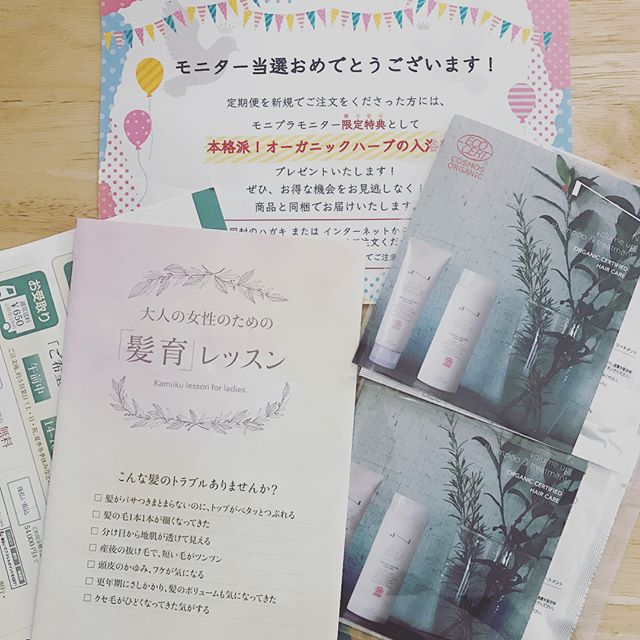 モニター当選おめでとうございます！
定期便を新規でご注文をくださった方には、
モニプラモニター限定特典として
本格派！オーガニックハーブの入浴
プレゼントいたします！
ぜひ、お得な機会をお見逃しなく！
商品と同梱でお届けいたします
同封のハガキ または インターネットから
ECO
CERT
COSMOS
ORGANIC
volume up
poo & treatment
ORGANIC CERTIFIED
HAIR CARE
大人の女性のための
「髪育」レッスン
Kamiiku lesson for ladies.
こんな髪のトラブルありませんか？
□ 髪がパサつきまとまらないのに、トップがペタッとつぶれる
□ 髪の毛1本1本が細くなってきた
□ 分け目から地肌が透けて見える
□ 産後の抜け毛で、短い毛がツンツン
□ 頭皮のかゆみ、フケが気になる
□ 更年期にさしかかり、髪のボリュームも気になってきた
□ クセ毛がひどくなってきた気がする
お受取り
¥650
午前中
14-
無料
54,000円まで
volume up
poo & treatment
ORGANIC CERTIFIED
HAIR CARE